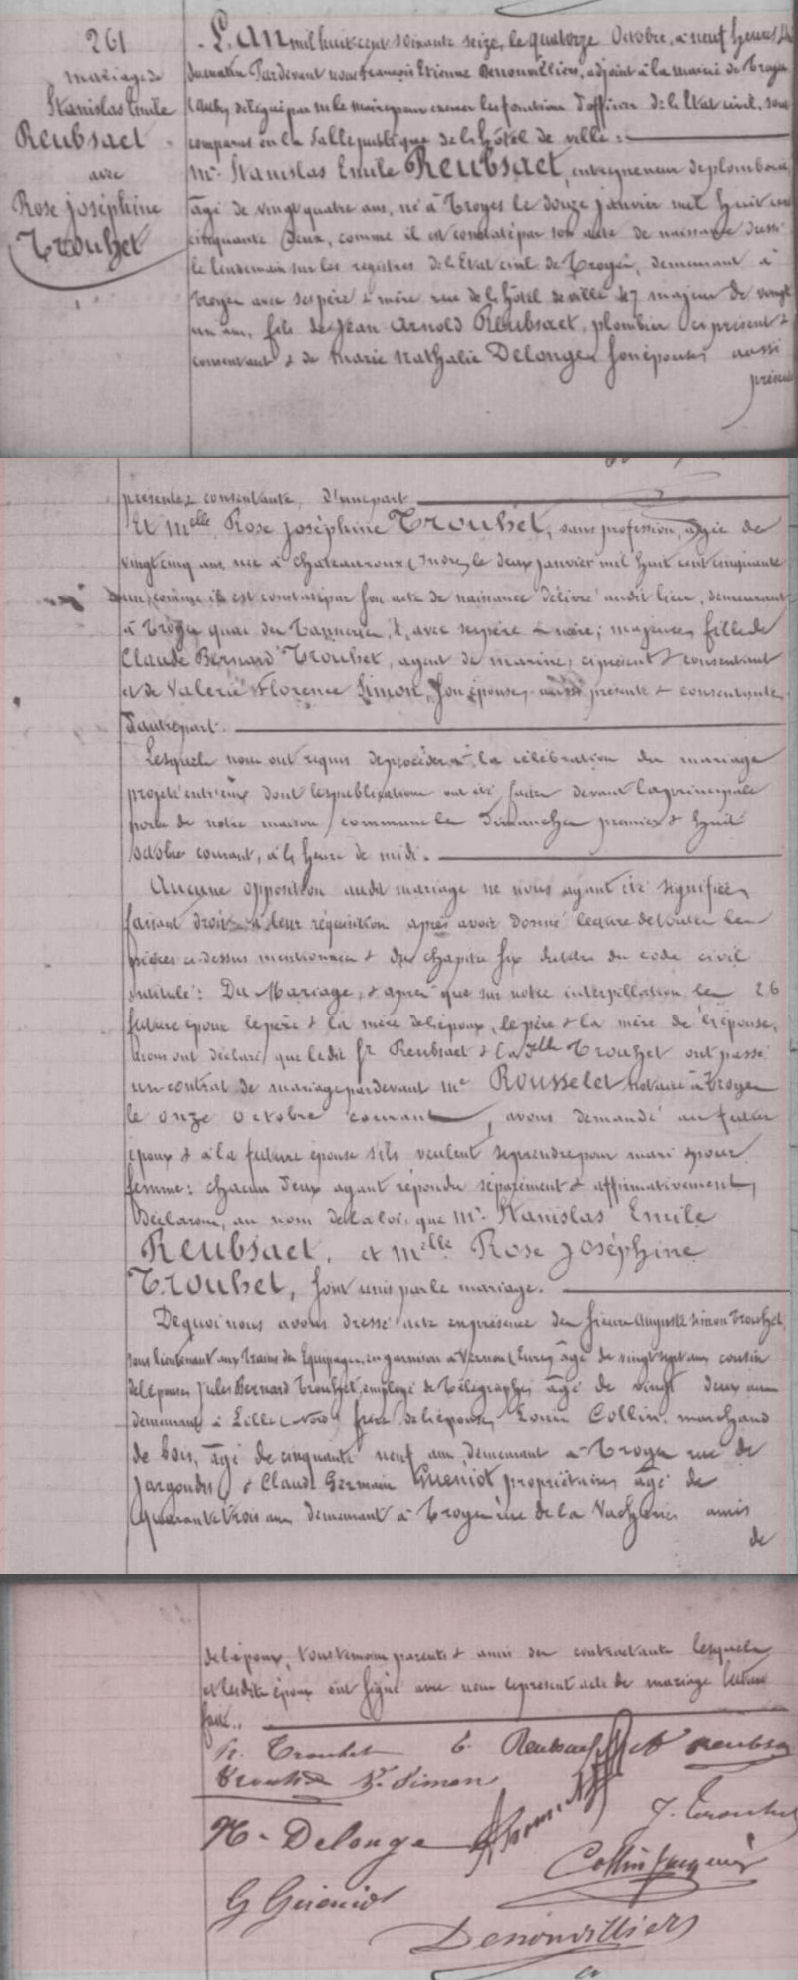 261
mariage de
Stanislas Emile
Reubsaet
avec
Rose Joséphine
Trouhet
L'an mil huit cent soixante seize, le quatorze Octobre, à neuf heures
du matin Pardevant nous François Etienne Denonvilliers, adjoint à la mairie de Troyes
(Aube) délégué par Mr le maire pour exercer les fonctions d'officier de l'Etat civil, sont
comparus en la Salle publique de l'hôtel de ville :
Mr Stanislas Emile Reubsaet, entrepreneur de plomberie
âgé de vingt quatre ans, né à Troyes le douze janvier mil huit cent
cinquante deux, comme il est constaté par son acte de naissance dressé
le lendemain sur les registres de l'Etat civil de Troyes, demeurant à
Troyes avec ses père & mère rue de l'hôtel de ville 47 majeur de vingt
un ans, fils de Jean Arnold Reubsaet, plombier ci présent &
consentant & de Marie Nathalie Delonges son épouse, aussi
présente
présente & consentante, d'une part
Et Melle Rose Joséphine Trouhet, sans profession, âgée de
vingt cinq ans née à Chateauroux (Indre) le deux janvier mil huit cent cinquante
un, comme il est constaté par son acte de naissance délivré audit lieu, demeurant
à Troyes quai des Tanneries, avec ses père & mère ; majeure, fille de
Claude Bernard Trouhet, agent de marine, ci présent & consentant
et de Valerie Florence Simon, son épouse, aussi présente & consentante
d'autre part.
Lesquels nous ont requis de procéder à la célébration du mariage
projeté entr'eux dont les publications ont été faites devant la principale
porte de notre maison commune les Dimanches premier & huit
octobre courant, à l'heure de midi.
Aucune opposition audit mariage ne nous ayant été signifiée,
faisant droit à leur réquisition après avoir donné lecture de toutes les
pièces ci-dessus mentionnées & du chapitre six du titre du code civil
intitulé : Du Mariage, & après que sur notre interpellation les 26
futurs époux le père & la mère de l'époux, le père & la mère de l'épouse,
nous ont déclaré que le dit Sr Reubsaet & la delle Trouhet ont passé
un contrat de mariage pardevant Me Rousselet notaire à Troyes
le onze octobre courant, avons demandé au futur
époux & à la future épouse s'ils veulent se prendre pour mari & pour
femme : chacun d'eux ayant répondu séparément & affirmativement,
Déclarons, au nom de la loi, que Mr Stanislas Emile
Reubsaet, et Melle Rose Joséphine
Trouhet, sont unis par le mariage.
De quoi nous avons dressé acte en présence des sieurs Auguste Simon Trouhet,
sous lieutenant aux trains des Equipages, en garnison à Vernon (Eure) âgé de vingt sept ans cousin
de l'épouse, Jules Bernard Trouhet, employé de Télégraphes, âgé de vingt deux ans
demeurant à Lille (Nord) frère de l'épouse, Louis Collin, marchand
de bois, âgé de cinquante neuf ans, demeurant à Troyes rue de
Jargondis & Claude Germain Gueniot propriétaire, âgé de
quarante trois ans demeurant à Troyes rue de la Vacherie, amis
de
de l'époux, tous témoins parents & amis des contractants lesquels
et lesdits époux ont signé avec nous le présent acte de mariage lecture
faite.
R. Trouhet E. Reubsaet Reubsa
Trouhet F. Simon
N. Delonge J. Trouhet
Collin
G Guéniot
Denonvilliers